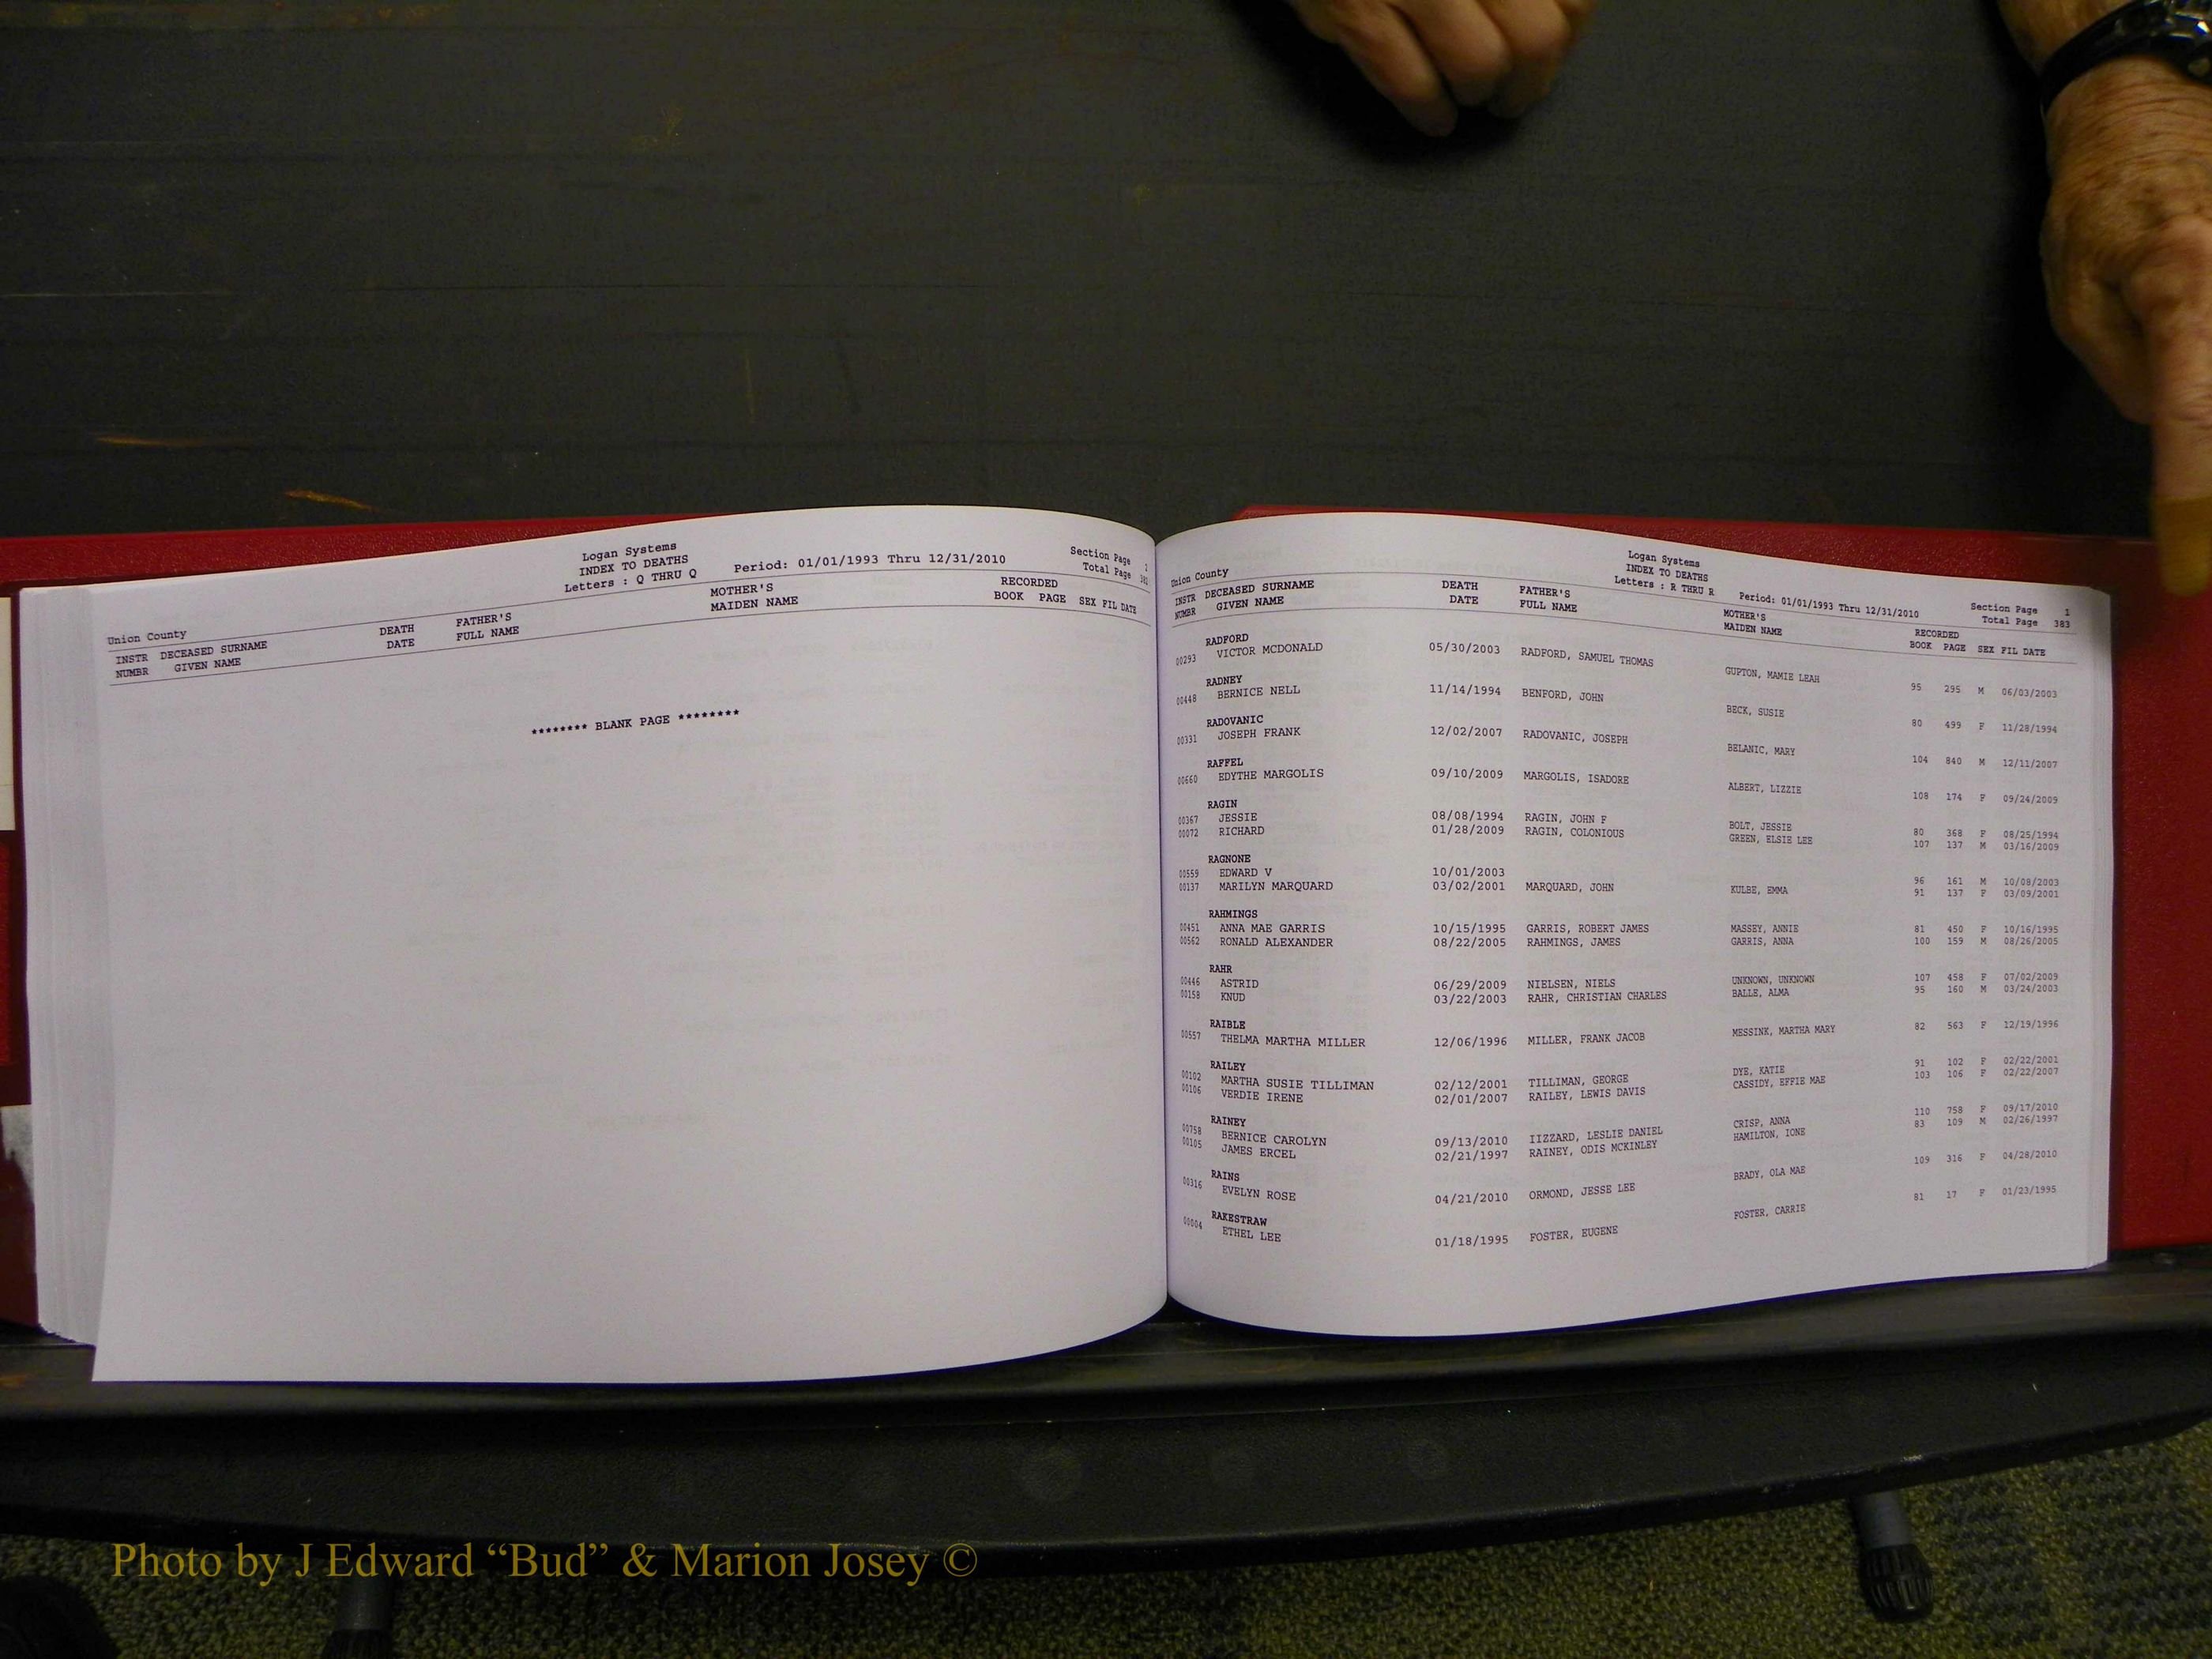 Logan Systems
INDEX TO DEATHS
Letters : Q THRU Q Period: 01/01/1993 Thru 12/31/2010
Section Page
Total Page 382
Union County
INSTR DECEASED SURNAME DEATH FATHER'S MOTHER'S RECORDED
NUMBR GIVEN NAME DATE FULL NAME MAIDEN NAME BOOK PAGE SEX FIL DATE
******** BLANK PAGE ********
Logan Systems
INDEX TO DEATHS
Letters : R THRU R Period: 01/01/1993 Thru 12/31/2010
Section Page 1
Total Page 383
Union County
INSTR DECEASED SURNAME DEATH FATHER'S MOTHER'S RECORDED
NUMBR GIVEN NAME DATE FULL NAME MAIDEN NAME BOOK PAGE SEX FIL DATE
RADFORD
00293 VICTOR MCDONALD 05/30/2003 RADFORD, SAMUEL THOMAS GUPTON, MAMIE LEAH 95 295 M 06/03/2003
RADNEY
00448 BERNICE NELL 11/14/1994 BENFORD, JOHN BECK, SUSIE 80 499 F 11/28/1994
RADOVANIC
00331 JOSEPH FRANK 12/02/2007 RADOVANIC, JOSEPH BELANIC, MARY 104 840 M 12/11/2007
RAFFEL
00660 EDYTHE MARGOLIS 09/10/2009 MARGOLIS, ISADORE ALBERT, LIZZIE 108 174 F 09/24/2009
RAGIN
00367 JESSIE 08/08/1994 RAGIN, JOHN F BOLT, JESSIE 80 368 F 08/25/1994
00072 RICHARD 01/28/2009 RAGIN, COLONIOUS GREEN, ELSIE LEE 107 137 M 03/16/2009
RAGNONE
00559 EDWARD V 10/01/2003 96 161 M 10/08/2003
00137 MARILYN MARQUARD 03/02/2001 MARQUARD, JOHN KULBE, EMMA 91 137 F 03/09/2001
RAHMINGS
00451 ANNA MAE GARRIS 10/15/1995 GARRIS, ROBERT JAMES MASSEY, ANNIE 81 450 F 10/16/1995
00562 RONALD ALEXANDER 08/22/2005 RAHMINGS, JAMES GARRIS, ANNA 100 159 M 08/26/2005
RAHR
00446 ASTRID 06/29/2009 NIELSEN, NIELS UNKNOWN, UNKNOWN 107 458 F 07/02/2009
00158 KNUD 03/22/2003 RAHR, CHRISTIAN CHARLES BALLE, ALMA 95 160 M 03/24/2003
RAIBLE
00557 THELMA MARTHA MILLER 12/06/1996 MILLER, FRANK JACOB MESSINK, MARTHA MARY 82 563 F 12/19/1996
RAILEY
00102 MARTHA SUSIE TILLIMAN 02/12/2001 TILLIMAN, GEORGE DYE, KATIE 91 102 F 02/22/2001
00106 VERDIE IRENE 02/01/2007 RAILEY, LEWIS DAVIS CASSIDY, EFFIE MAE 103 106 F 02/22/2007
RAINEY
00758 BERNICE CAROLYN 09/13/2010 IIZZARD, LESLIE DANIEL CRISP, ANNA 110 758 F 09/17/2010
00105 JAMES ERCEL 02/21/1997 RAINEY, ODIS MCKINLEY HAMILTON, IONE 83 109 M 02/26/1997
RAINS
00316 EVELYN ROSE 04/21/2010 ORMOND, JESSE LEE BRADY, OLA MAE 109 316 F 04/28/2010
RAKESTRAW
00004 ETHEL LEE 01/18/1995 FOSTER, EUGENE FOSTER, CARRIE 81 17 F 01/23/1995
Photo by J Edward “Bud” & Marion Josey ©